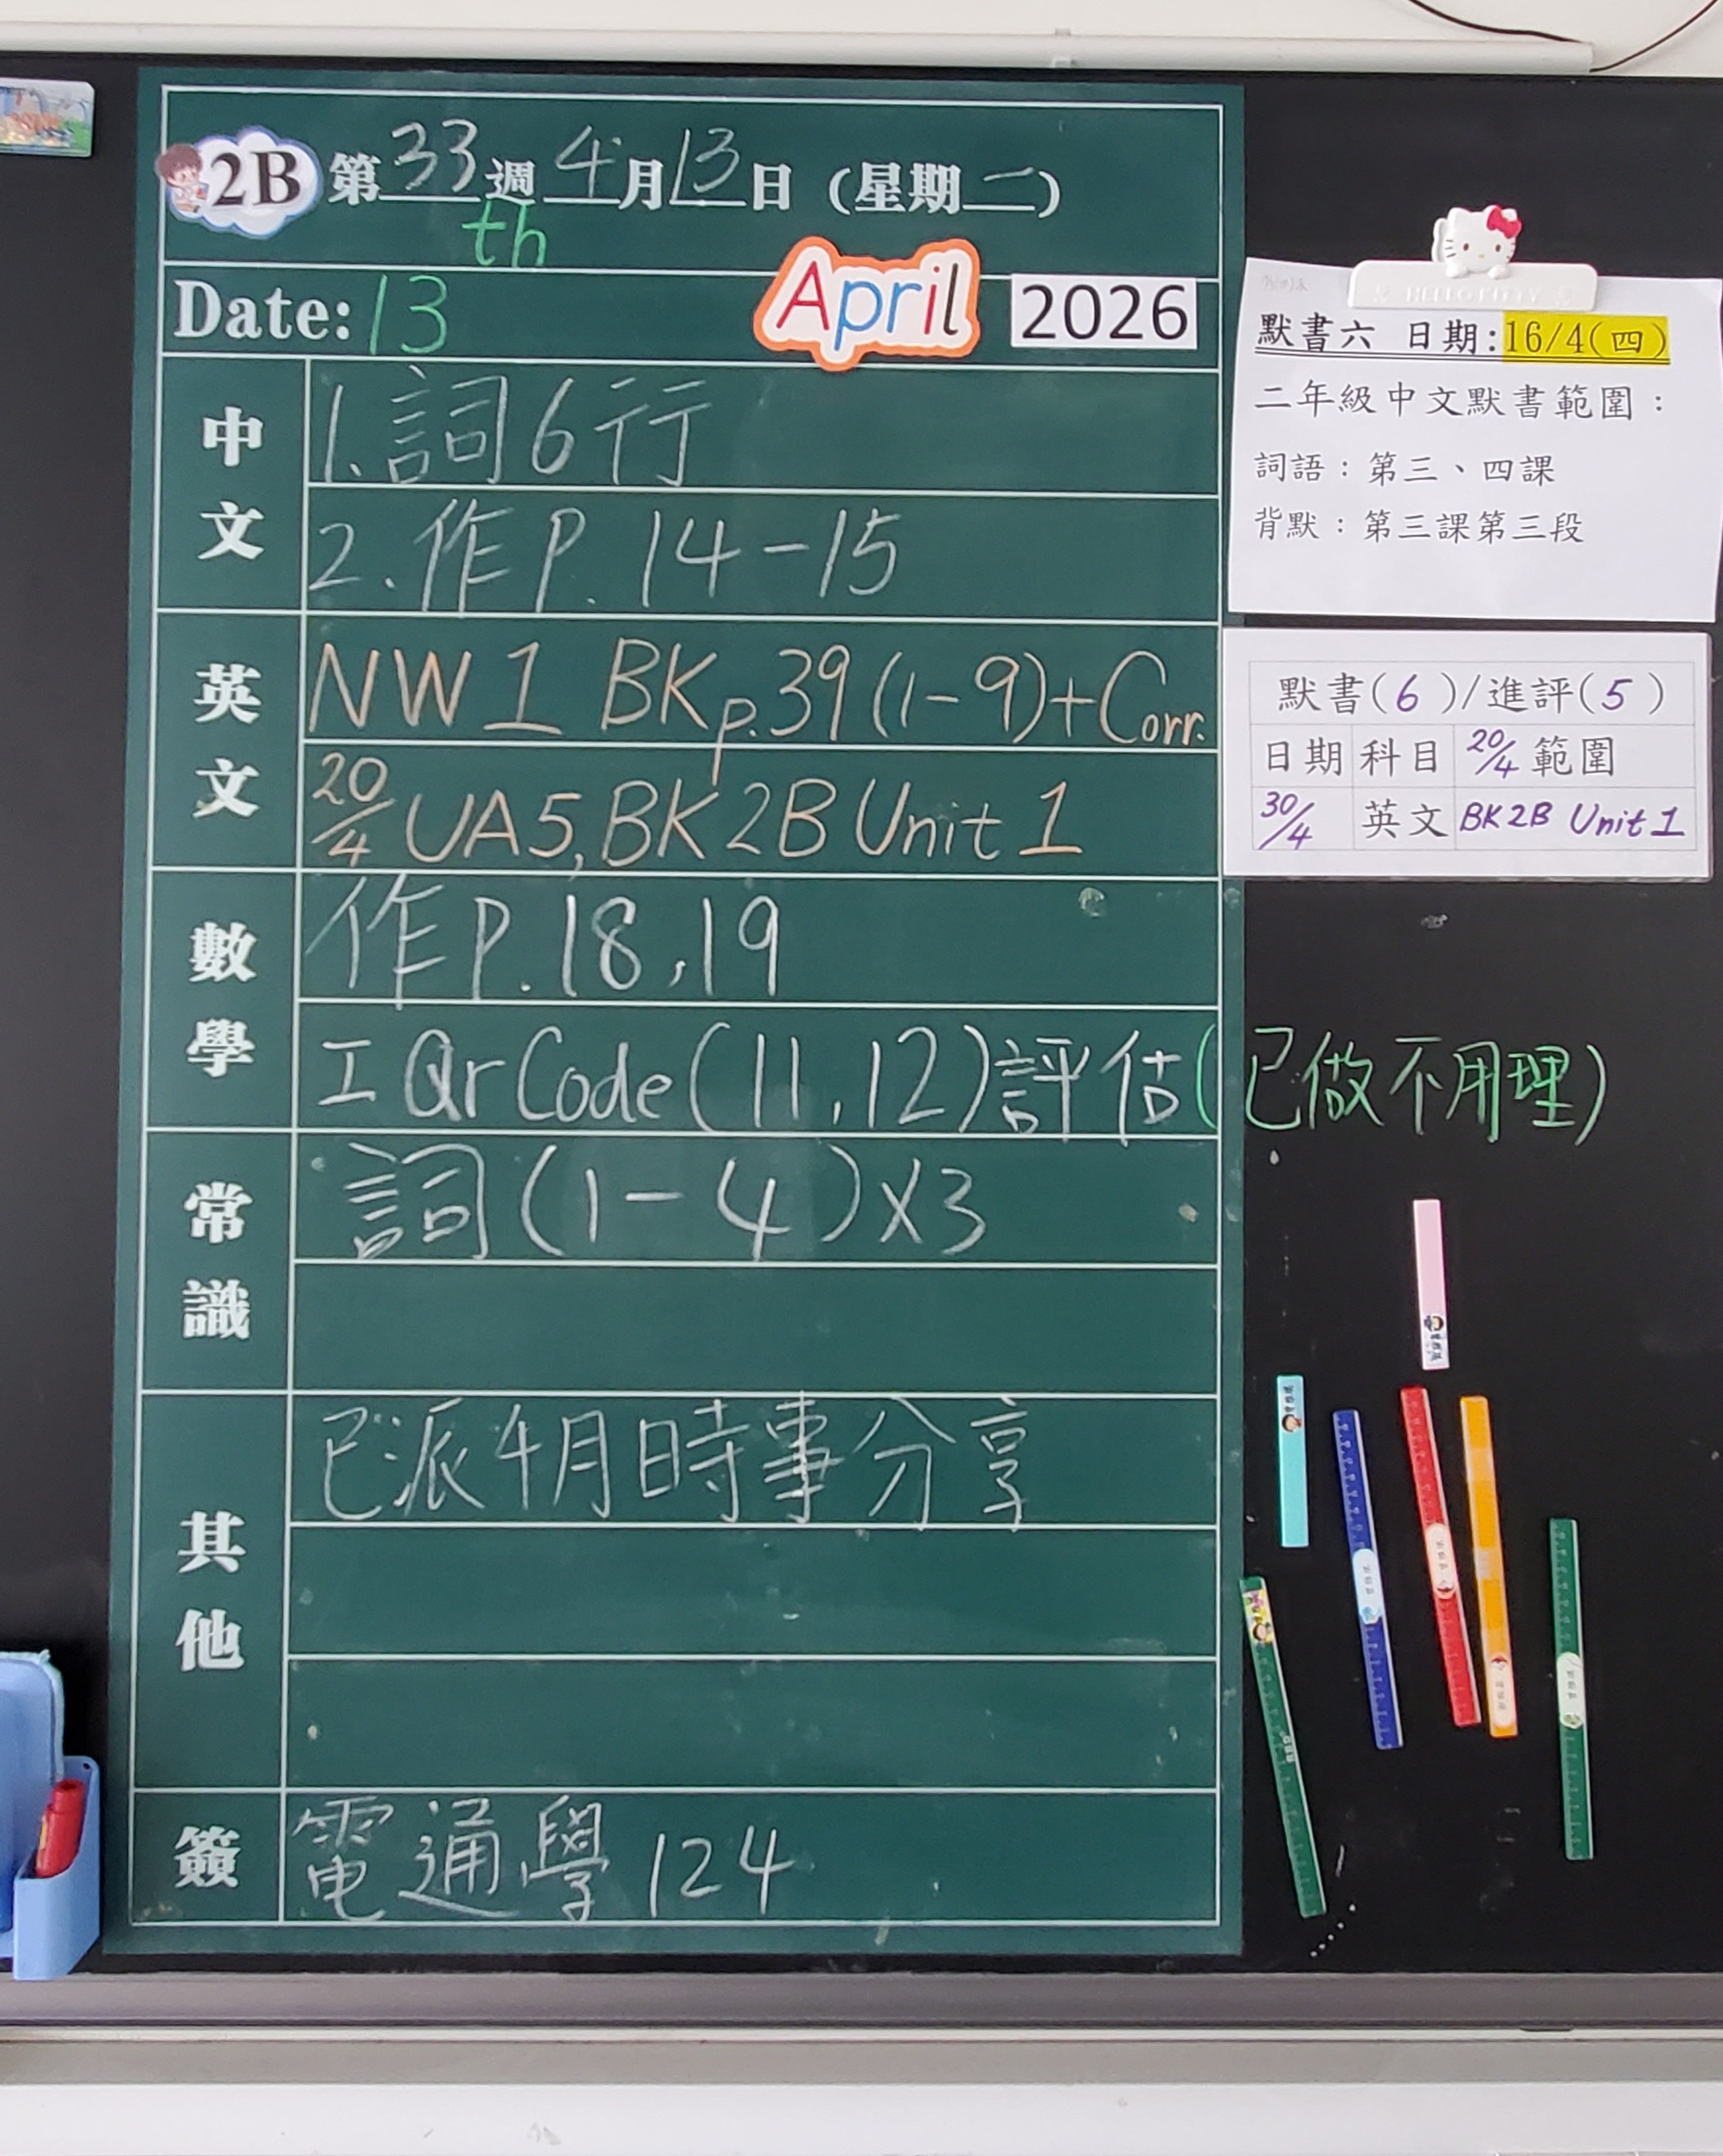 2B 第33週 4月13日 (星期二)
th
Date: 13 April 2026
中文
1. 詞6行
2. 作P. 14-15
英文
NW 1 BK p.39 (1-9)+Corr.
20/4 UA5, BK 2B Unit 1
數學
作P. 18, 19
IQrCode(11, 12)評估(已做不用理)
常識
詞(1-4)x3
其他
已派4月時事分享
簽
電通學 124
HELLO KITTY
默書六 日期:16/4(四)
二年級中文默書範圍:
詞語:第三、四課
背默:第三課第三段
默書(6)/進評(5)
日期 科目 20/4 範圍
30/4 英文 BK 2B Unit 1